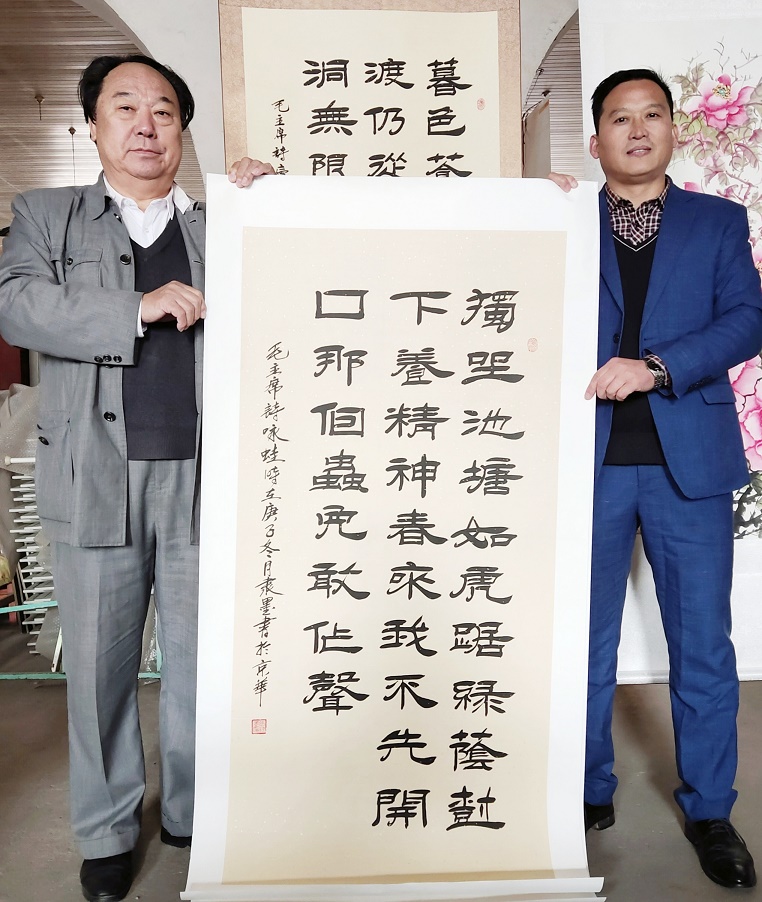 暮色蒼
渡仍從
洞無限
毛主席詩
獨坐池塘如虎踞綠蔭樹
下養精神春來我不先開
口那個蟲兒敢作聲
毛主席詩咏蛙時在庚子冬月袁墨書於京華